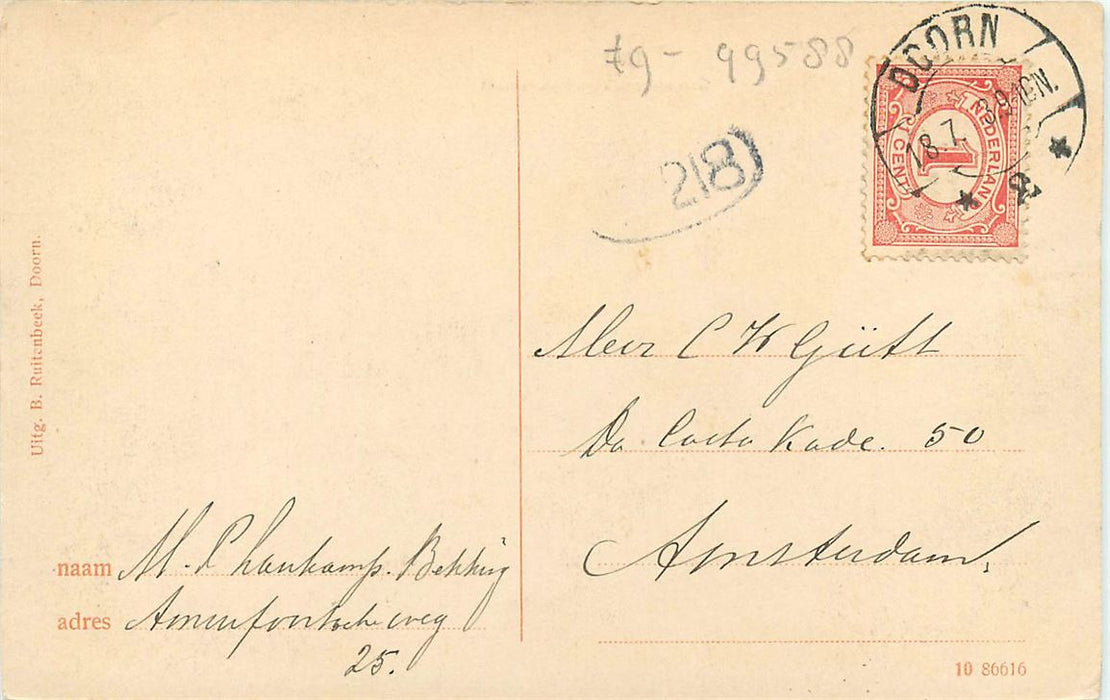 79-99588
218
DOORN
18.7. 3.9 10N.
NEDERLAND
1
1 CENT
Uitg. B. Ruitenbeek, Doorn.
C W Gütt
Da Costa Kade. 50
Amsterdam,
naam M. Bekking
adres Amersfoortsche weg
25.
10 86616